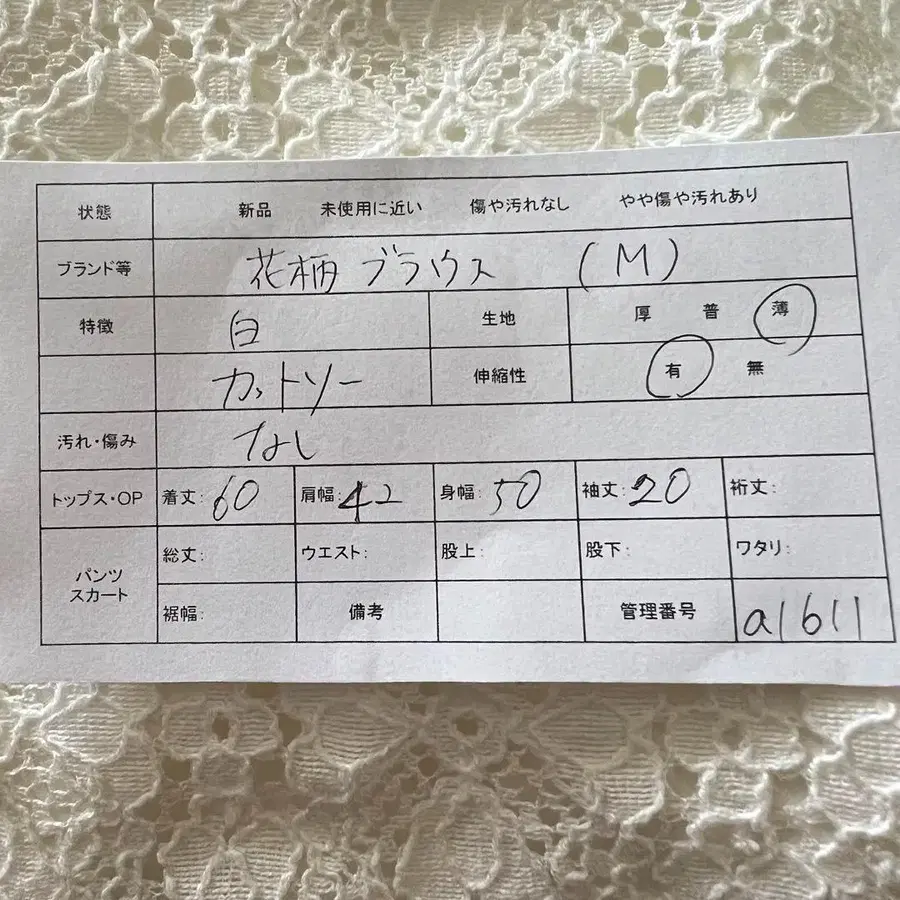 状態 新品 未使用に近い 傷や汚れなし やや傷や汚れあり
ブランド等 花柄ブラウス (M)
特徴 白 生地 厚 普 薄
カットソー 伸縮性 有 無
汚れ・傷み なし
トップス・OP 着丈: 60 肩幅: 42 身幅: 50 袖丈: 20 裄丈:
パンツ スカート 総丈: ウエスト: 股上: 股下: ワタリ:
裾幅: 備考 管理番号 a1611